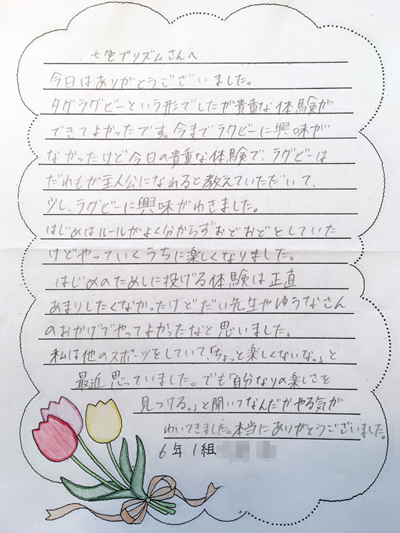 七色プリズムさんへ
今日はありがとうございました。
タグラグビーという形でしたが貴重な体験が
できてよかったです。今までラクビーに興味が
なかったけど今日の貴重な体験で、ラグビーは
だれもが主人公になれると教えていただいて、
少し、ラグビーに興味がわきました。
はじめはルールがよく分からずおどおどとしていた
けどやっていくうちに楽しくなりました。
はじめのためしに投げる体験は正直
あまりしたくなかったけどだい先生やゆうなさん
のおかげでやってよかったなと思いました。
私は他のスポーツをしていて「ちょっと楽しくないな。」と
最近思っていました。でも「自分なりの楽しさを
見つける。」と聞いてなんだかやる気が
わいてきました。本当にありがとうございました。
6年1組